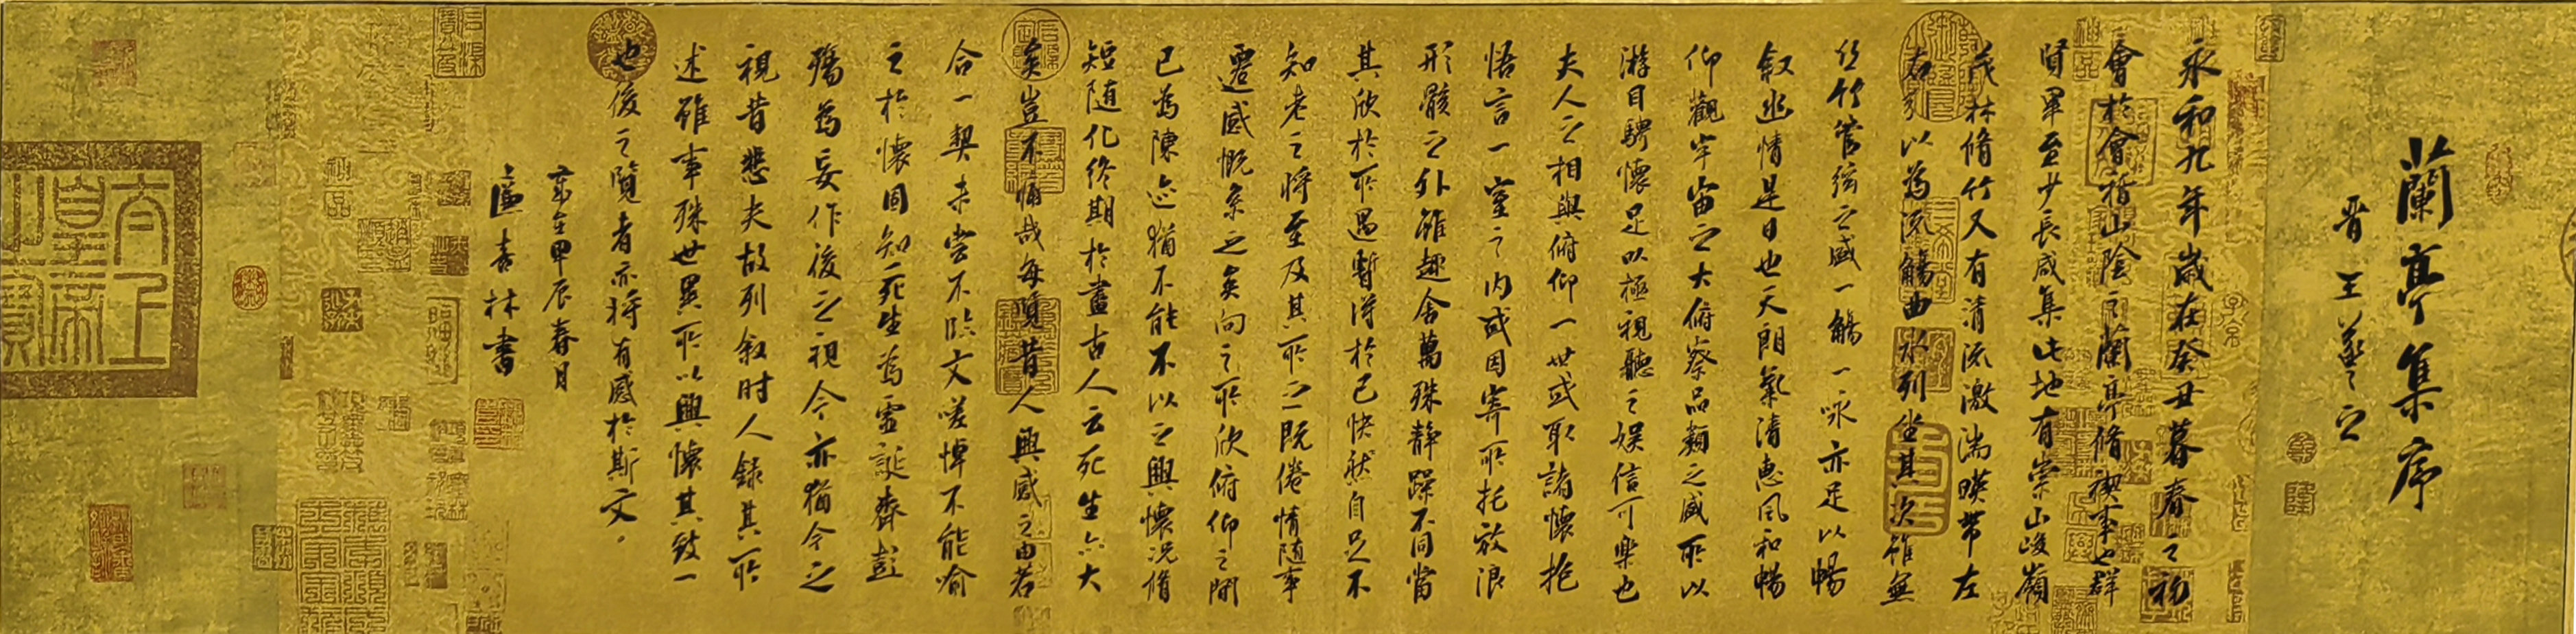 蘭亭集序
晉 王羲之
永和九年歲在癸丑暮春之初
會於會稽山陰之蘭亭脩禊事也群
賢畢至少長咸集此地有崇山峻嶺
茂林脩竹又有清流激湍暎帶左
右引以為流觴曲水列坐其次雖無
丝竹管弦之盛一觴一咏亦足以暢
叙幽情是日也天朗氣清惠風和暢
仰觀宇宙之大俯察品類之盛所以
游目騁懷足以極視聽之娱信可樂也
夫人之相與俯仰一世或取諸懷抱
悟言一室之内或因寄所托放浪
形骸之外雖趣舍萬殊静躁不同當
其欣於所遇暫得於己快然自足不
知老之將至及其所之既倦情随事
遷感慨系之矣向之所欣俯仰之間
已為陳迹猶不能不以之興懷況脩
短随化終期於盡古人云死生亦大
矣豈不痛哉每覽昔人興感之由若
合一契未嘗不臨文嗟悼不能喻
之於懷固知死生為虛誕齊彭
殤為妄作後之視今亦猶今之
視昔悲夫故列叙时人錄其所
述雖事殊世異所以興懷其致一
也後之覽者亦將有感於斯文。
歲在甲辰春月
喜林書
太上皇帝之寶